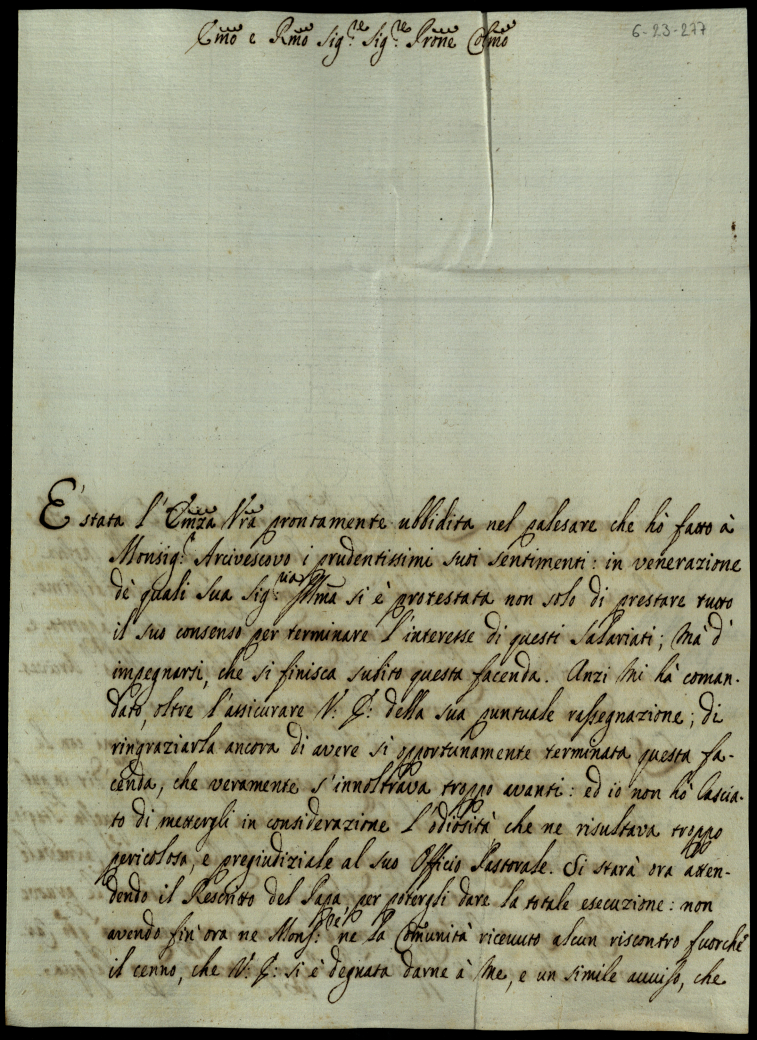 Emo e Rmo Sig:re Sig:re Prone Colmo
6-23-277
È stata l'Emza Vra prontamente ubbidita nel palesare che hò fatto à
Monsig:r Arcivescovo i prudentissimi suoi sentimenti: in venerazione
dè quali Sua Sig:ria Illma si è protestata non solo di prestare tutto
il suo consenso per terminare l'interesse di questi Salariati; mà d'
impegnarsi, che si finisca subito questa facenda. Anzi mi hà coman-
dato, oltre l'assicurare V: E: della sua puntuale rassegnazione; di
ringraziarla ancora di avere sì opportunamente terminata questa fa-
cenda, che veramente s'innoltrava troppo avanti: ed io non hò lascia-
to di mettergli in considerazione l'odiosità che ne risultava troppo
pericolosa, e pregiudiziale al suo Officio Pastorale. Si starà ora atten-
dendo il Rescritto del Papa, per potergli dare la totale esecuzione: non
avendo fin'ora ne Mons:re ne la Comunità ricevuto alcun riscontro fuorché
il cenno, che V: E: si è degnata darne à me, e un simile avviso, che